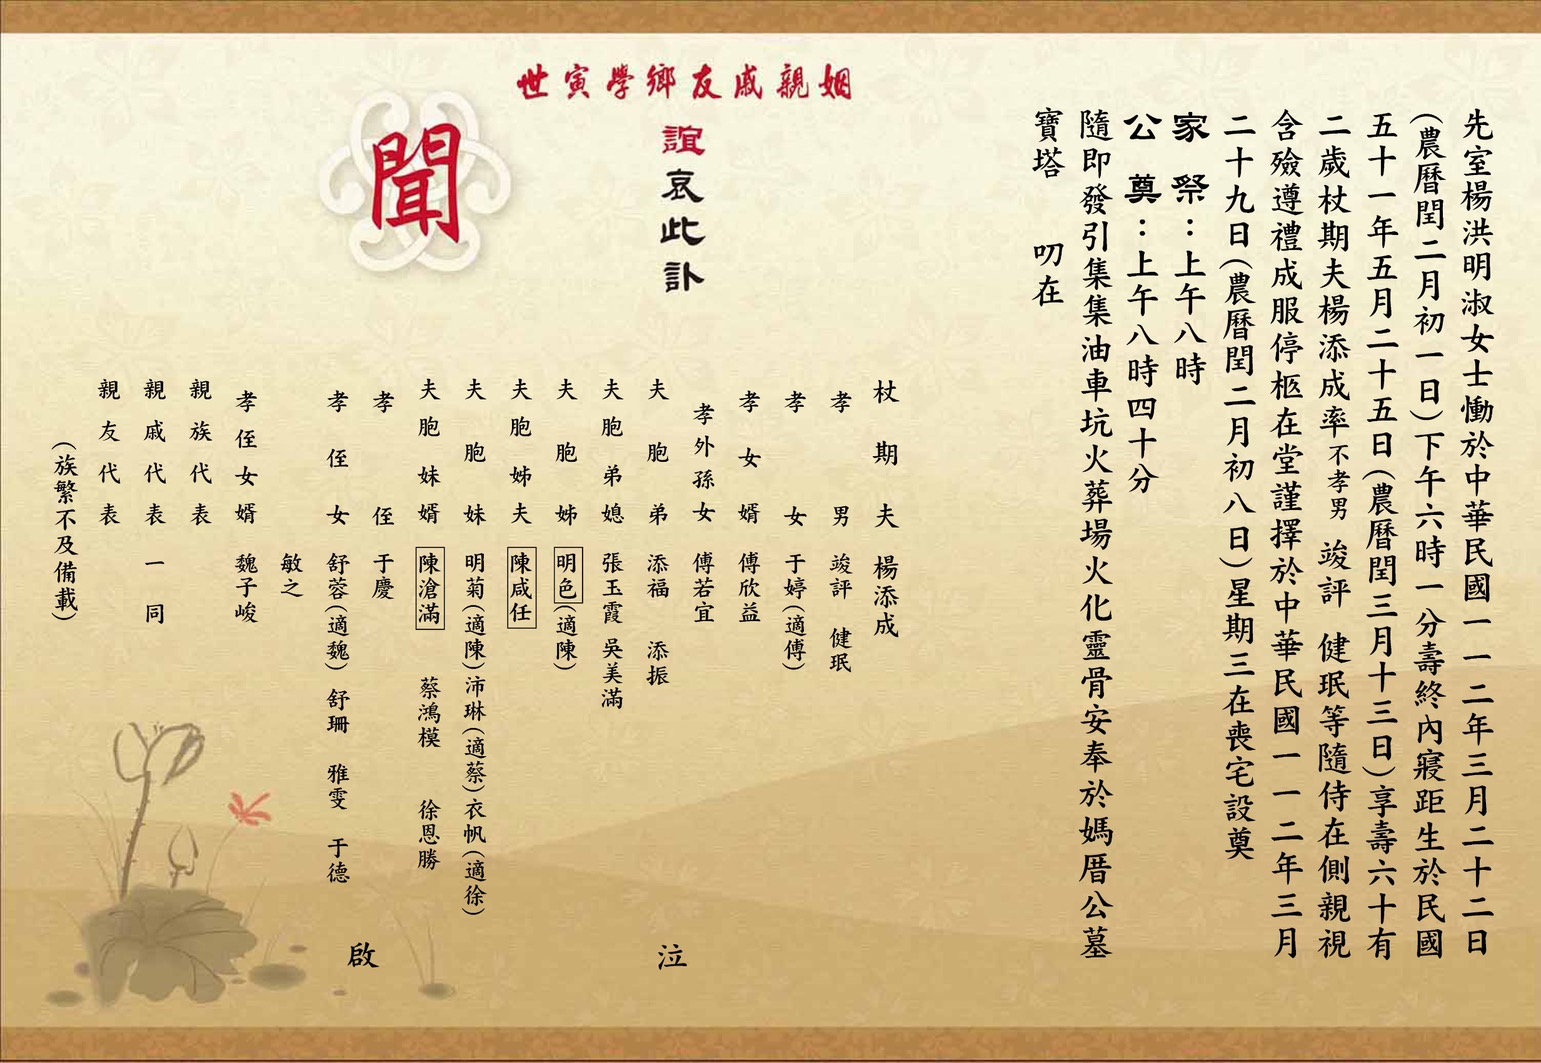 先室楊洪明淑女士慟於中華民國一一二年三月二十二日
(農曆閏二月初一日)下午六時一分壽終內寢距生於民國
五十一年五月二十五日(農曆閏三月十三日)享壽六十有
二歲杖期夫楊添成率不孝男 竣評 健珉等隨侍在側親視
含殮遵禮成服停柩在堂謹擇於中華民國一一二年三月
二十九日(農曆閏二月初八日)星期三在喪宅設奠
家祭：上午八時
公奠：上午八時四十分
隨即發引集集油車坑火葬場火化靈骨安奉於媽厝公墓
寶塔 叨在
姻親戚友鄉學寅世
誼哀此訃
聞
杖期夫 楊添成
孝男 竣評 健珉
孝女 于婷(適傅)
孝女婿 傅欣益
孝外孫女 傅若宜
夫胞弟 添福 添振
夫胞弟媳 張玉霞 吳美滿
夫胞姊 明色(適陳)
夫胞姊夫 陳咸任
夫胞妹 明菊(適陳)沛琳(適蔡)衣帆(適徐)
夫胞妹婿 陳滄滿 蔡鴻模 徐恩勝
孝侄 于慶
孝侄女 舒蓉(適魏) 舒珊 雅雯 于德
敏之
孝侄女婿 魏子峻
親族代表
親戚代表 一同
親友代表
(族繁不及備載)
泣
啟